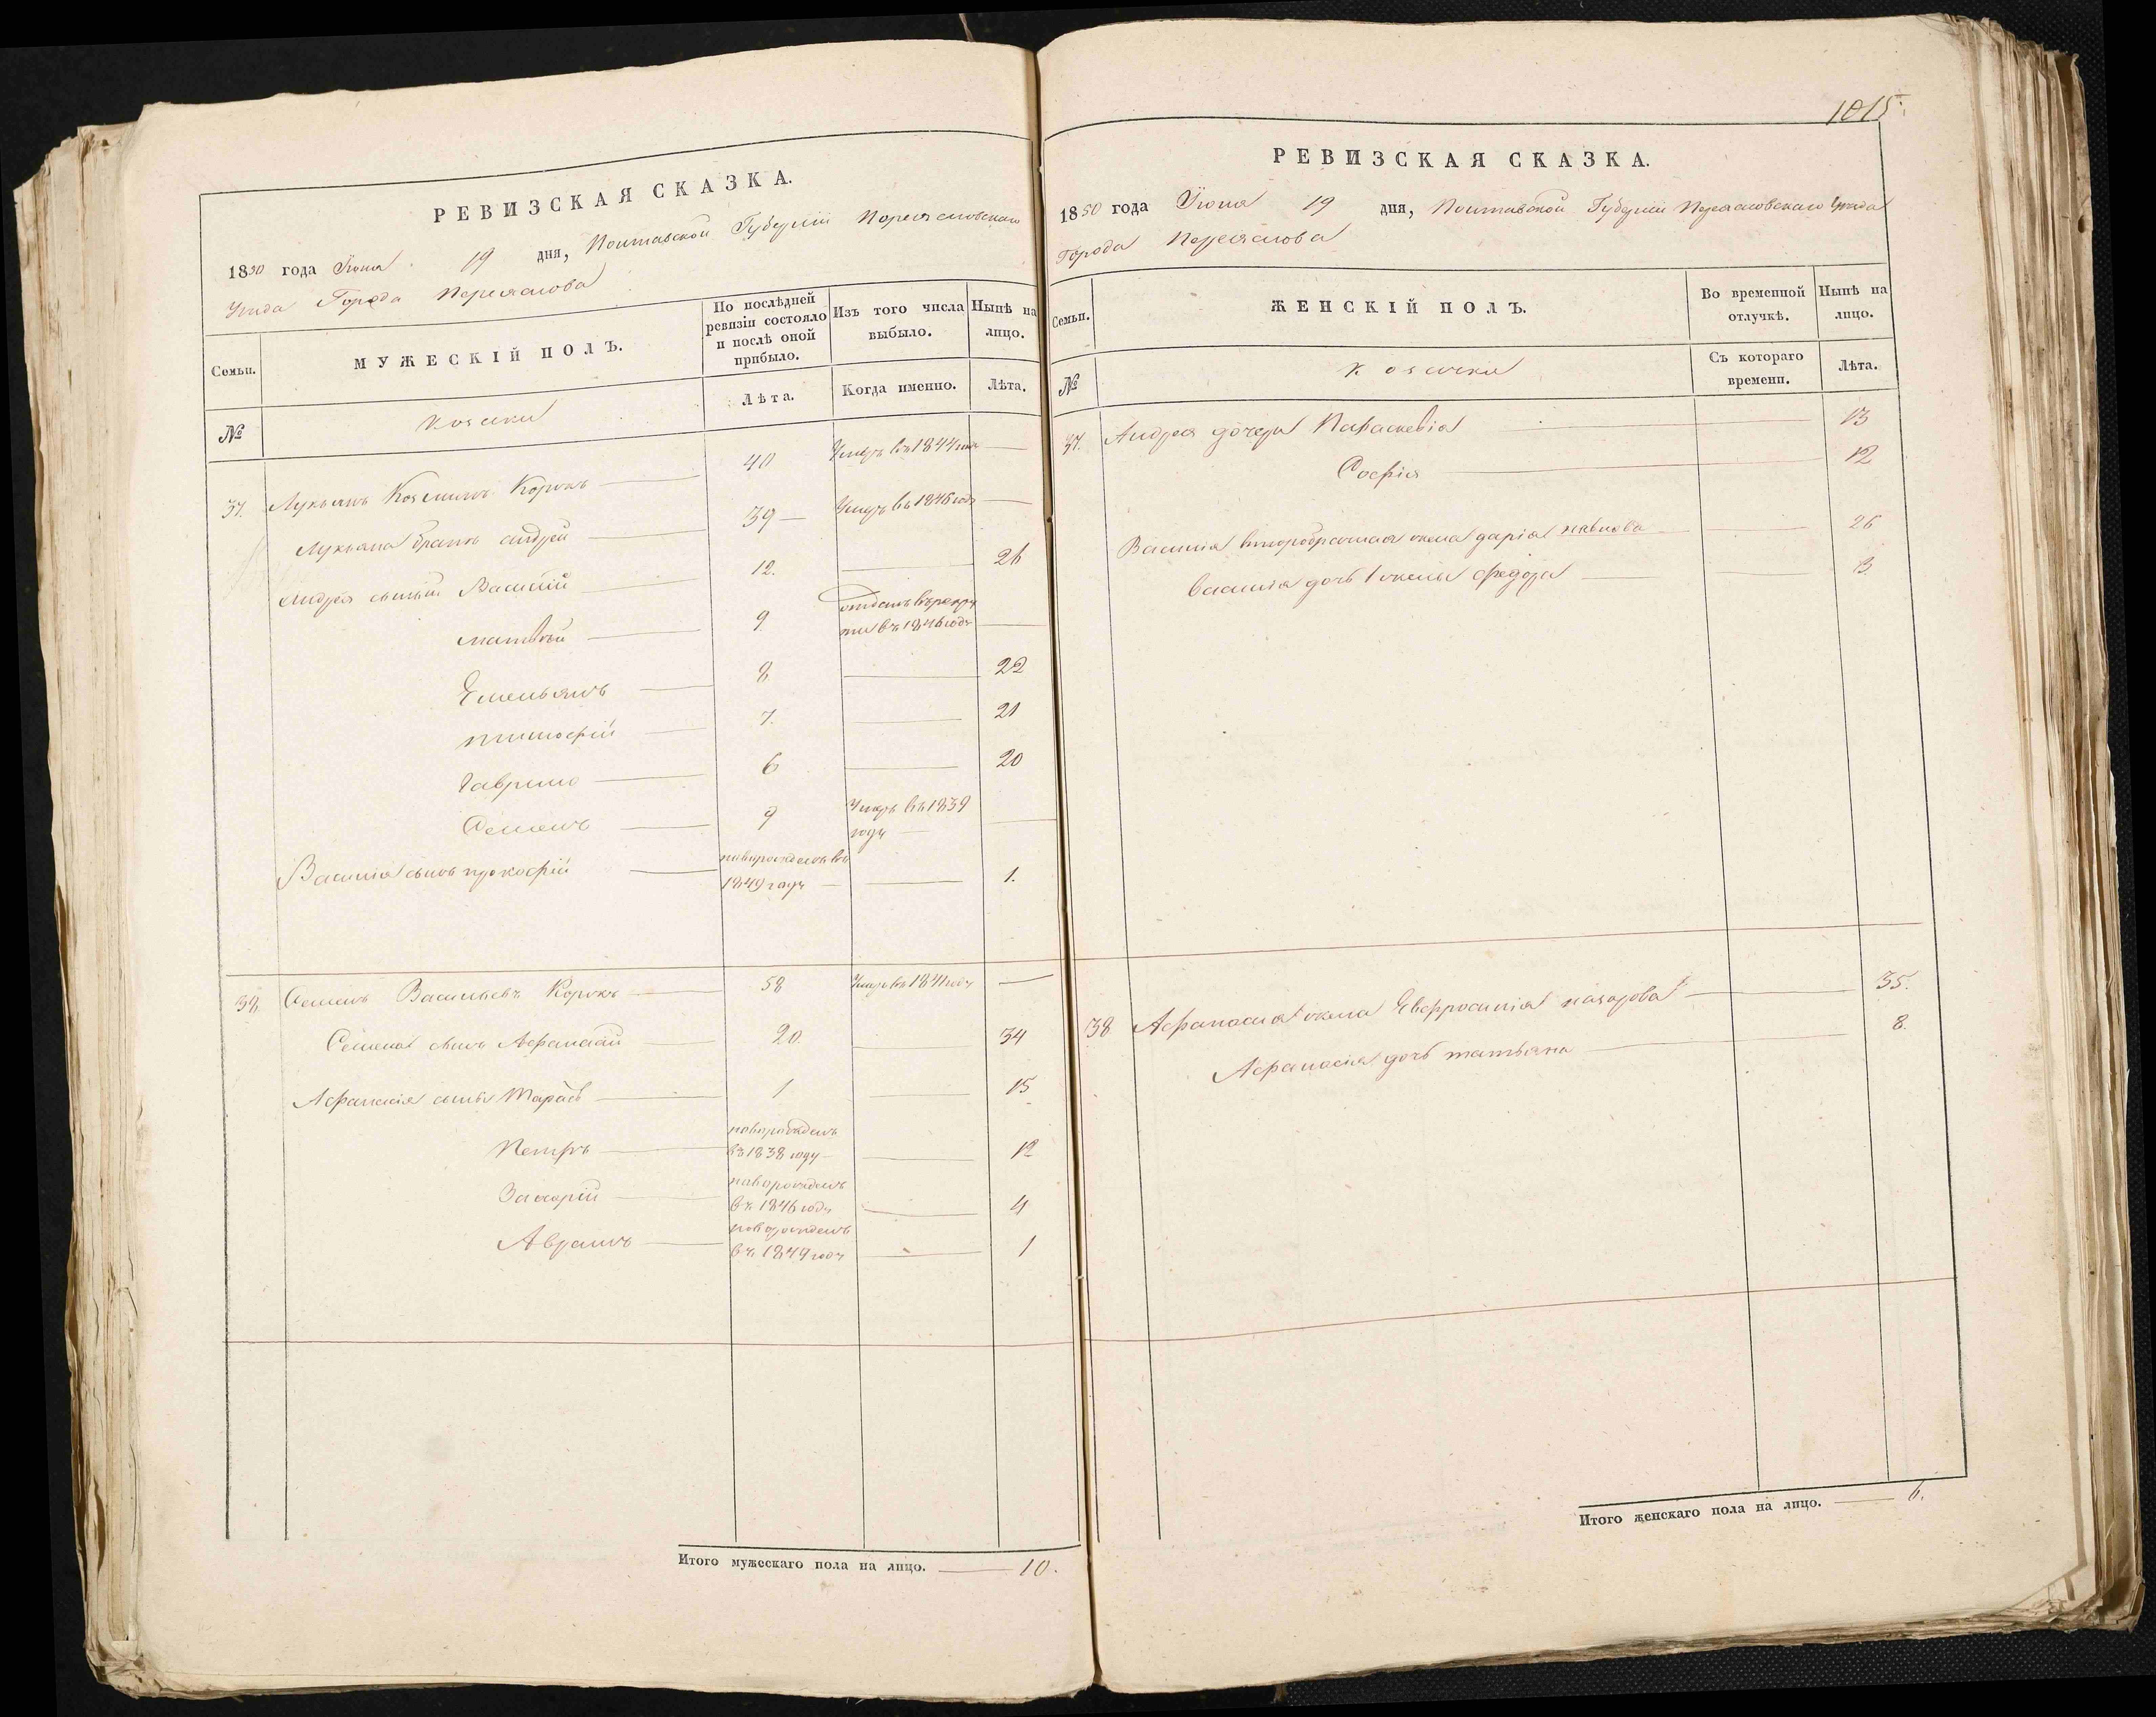 РЕВИЗСКАЯ СКАЗКА.
1850 года Июня 19 дня, Полтавской Губерніи Переяславскаго
Уѣзда Города Переяслова
Семьи.
МУЖЕСКІЙ ПОЛЪ.
По послѣдней ревизіи состояло и послѣ оной прибыло.
Изъ того числа выбыло.
Нынѣ на лицо.
№
Козаки
Лѣта.
Когда именно.
Лѣта.
37. Лукьянъ Козминъ Корокъ — 40 Умеръ въ 1844 —
Лукьяна братъ Андрей — 39 — Умеръ въ 1846 году —
Андрея сыновья Василій — 12. — 26
Матвѣй — 9. отданъ въ рекруты въ 1846 году —
Емельянъ — 8 — 22
Тимофій — 7. — 21
Гаврило — 6 — 20
Семенъ — 9 Умеръ въ 1839 году —
Василія сынъ Прокофій — новорожденъ въ 1849 году — 1.
38. Семенъ Васильевъ Корокъ — 58 Умеръ въ 1841 году —
Семена сынъ Афанасій — 20. — 34
Афанасія сынъ Тарасъ — 1 — 15
Петръ — новорожденъ въ 1838 году — 12
Захарій — новорожденъ въ 1846 году — 4
Аврамъ — новорожденъ въ 1849 году — 1
Итого мужескаго пола на лицо. — 10.
1015.
РЕВИЗСКАЯ СКАЗКА.
1850 года Июня 19 дня, Полтавской Губерніи Переясловскаго Уѣзда
Города Переяслова
Семьи.
ЖЕНСКІЙ ПОЛЪ.
Во временной отлучкѣ.
Нынѣ на лицо.
№
Козачки
Съ котораго времени.
Лѣта.
37. Андрея дочери Параскевія — 13
Софія — 12
Василія второбрачная жена Дарія Павлова — 26
Василія дочь 1 жены Федора — 3
38 Афанасія жена Евфросинія Назарова — 35.
Афанасія дочь Татьяна — 8.
Итого женскаго пола на лицо. — 6.